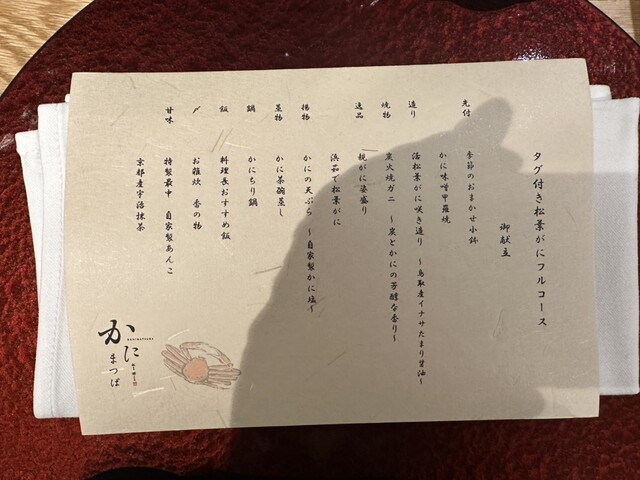 タグ付き松葉がにフルコース
御献立
先付 季節のおまかせ小鉢
かに味噌甲羅焼
造り 活松葉がに咲き造り ～鳥取産イナサたまり醤油～
焼物 炭火焼ガニ ～炭とかにの芳醇な香り～
逸品 親がに姿盛り
浜茹で松葉がに
揚物 かにの天ぷら ～自家製かに塩～
蒸物 かに茶碗蒸し
鍋 かにちり鍋
飯 料理長おすすめ飯
〆 お雑炊 香の物
甘味 特製最中 自家製あんこ
京都産宇治抹茶
かに
まつば